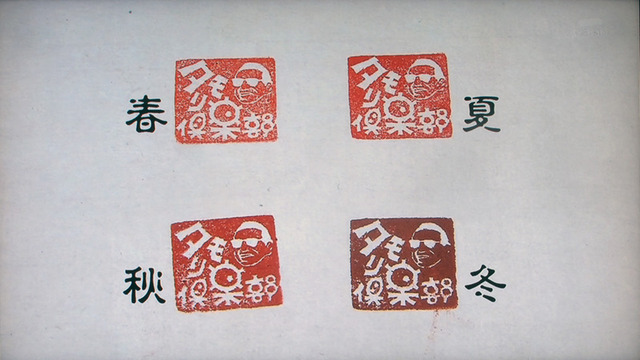 春
タモリ倶楽部
タモリ倶楽部
夏
秋
タモリ倶楽部
タモリ倶楽部
冬